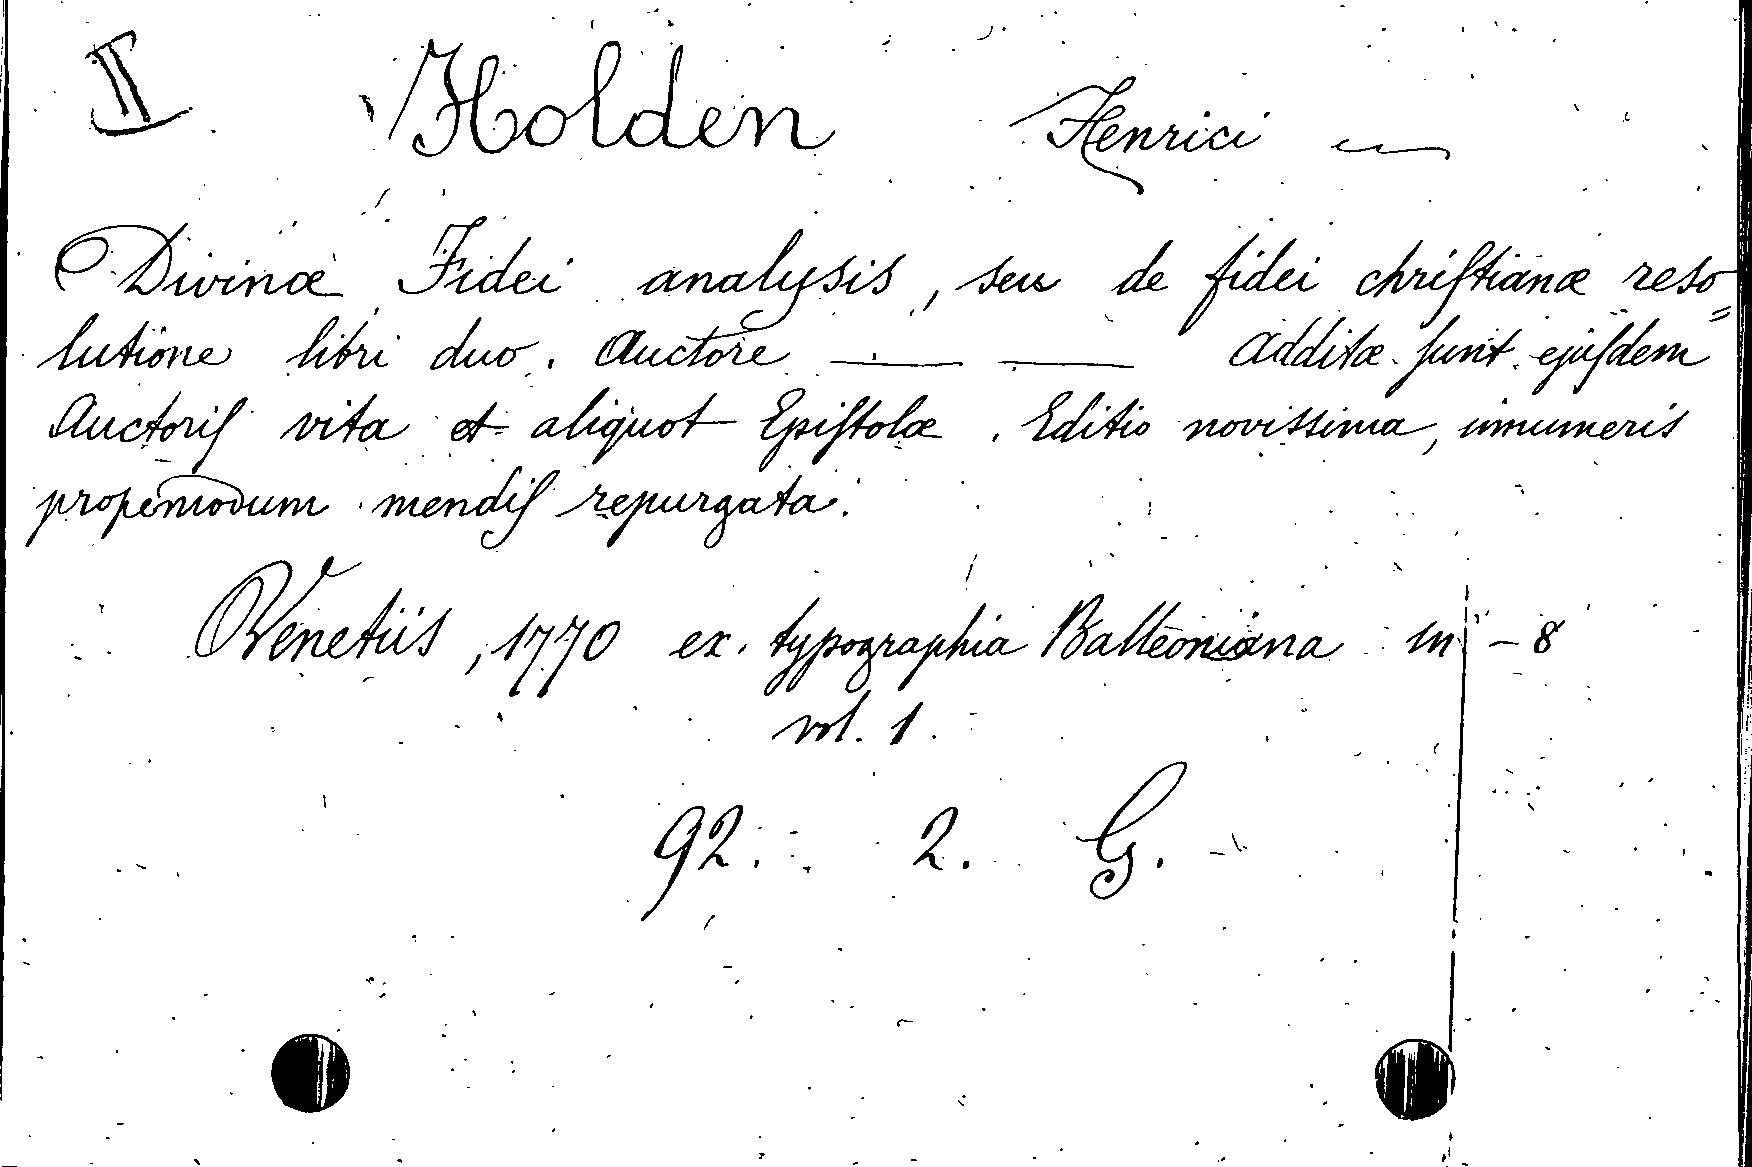 II Holden Henrici
Divinæ Fidei analysis, seu de fidei chriſtianæ reso=
lutione libri duo. Auctore —— —— Additæ ſunt ejuſdem
Auctoriſ vita et aliquot Epiſtolæ. Editio noviſsima, innumeris
propemodum mendiſ repurgata.
Venetiis, 1770 ex typographia Balleoniana in - 8
vol. 1.
92. 2. G.